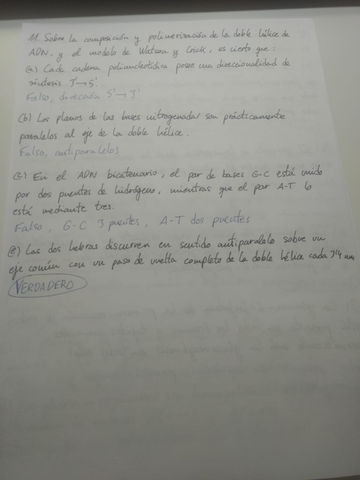 11. Sobre la composición y polimerización de la doble hélice de
ADN, y el modelo de Watson y Crick, es cierto que:
(a) Cada cadena polinucleotídica posee una direccionalidad de
síntesis 3'→5'.
Falso, dirección 5'→3'
(b) Los planos de las bases nitrogenadas son prácticamente
paralelos al eje de la doble hélice.
Falso, antiparalelos
En el ADN bicatenario, el par de bases G-C está unido
por dos puentes de hidrógeno, mientras que el par A-T lo
está mediante tres.
Falso, G-C 3 puentes, A-T dos puentes
Las dos hebras discurren en sentido antiparalelo sobre un
eje común con un paso de vuelta completo de la doble hélice cada 3'4 nm
VERDADERO